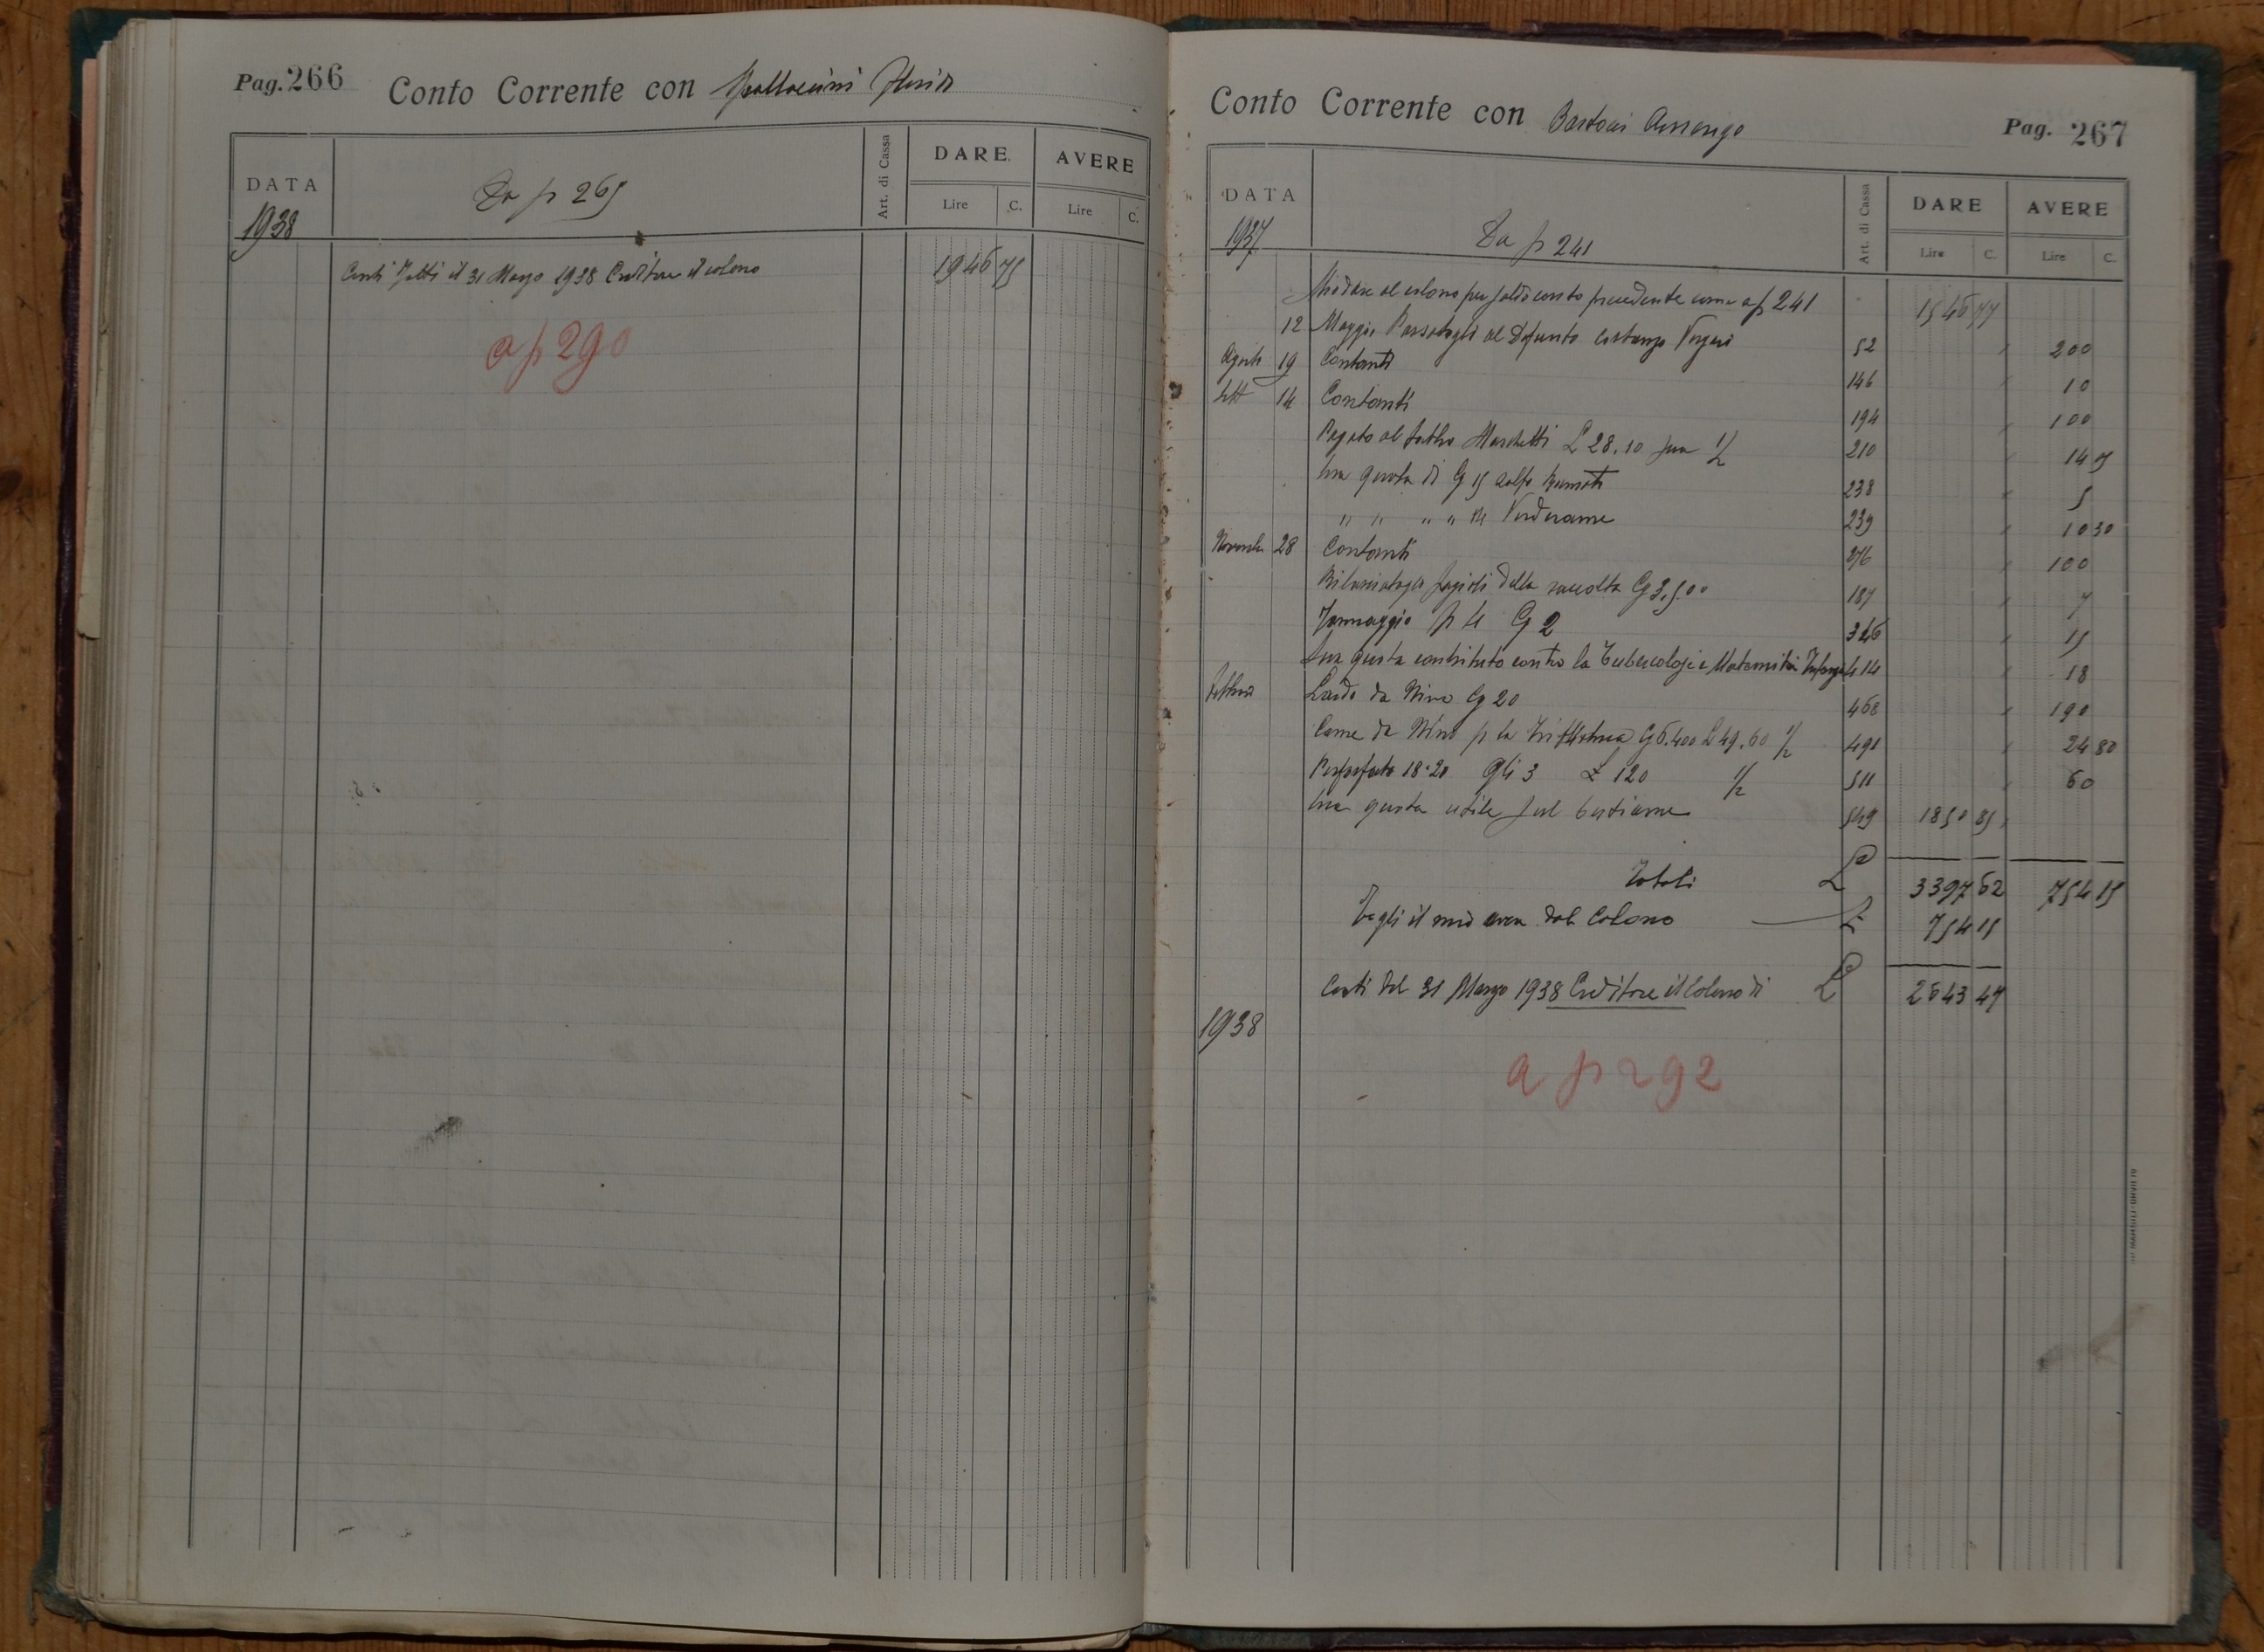 Pag. 266 Conto Corrente con
DATA Art. di Cassa DARE. AVERE
Lire C. Lire C.
1938 Da p 265
Conti fatti il 31 Marzo 1938 Creditore il colono 1946 75
a p 290
Conto Corrente con Bartocci Pag. 267
DATA Art. di Cassa DARE AVERE
Lire C. Lire C.
1937 Da p 241
Mio dare al colono per saldo conto precedente come a p 241 1546 77
12 Maggio al Defunto 52 200
Agosto 19 Contanti 146 10
Sett 14 Contanti 194 100
Pagato al Marchetti L 28.10 sua 1/2 210 14 05
Sua quota di Cg 15 Zolfo 238 5
" " " " 14 Verderame 239 10 30
Novembre 28 Contanti 276 100
fagioli della raccolta Cg 3,500 187 7
Formaggio p 4 Cg 2 326 15
Sua quota contributo contro la Tubercolosi e Maternità 414 18
Febbraio Lardo da Nino Cg 20 468 190
Carne da Nino p la Cg 6.400 L 49.60 1/2 491 24 80
Perfosfato 18-20 Qli 3 L 120 1/2 511 60
Sua quota utile sul bestiame 549 1850 85
Totali L 3397 62 754 15
Togli il mio avere dal Colono L 754 15
Conti del 31 Marzo 1938 Creditore il Colono di L 2643 47
1938
a p 292